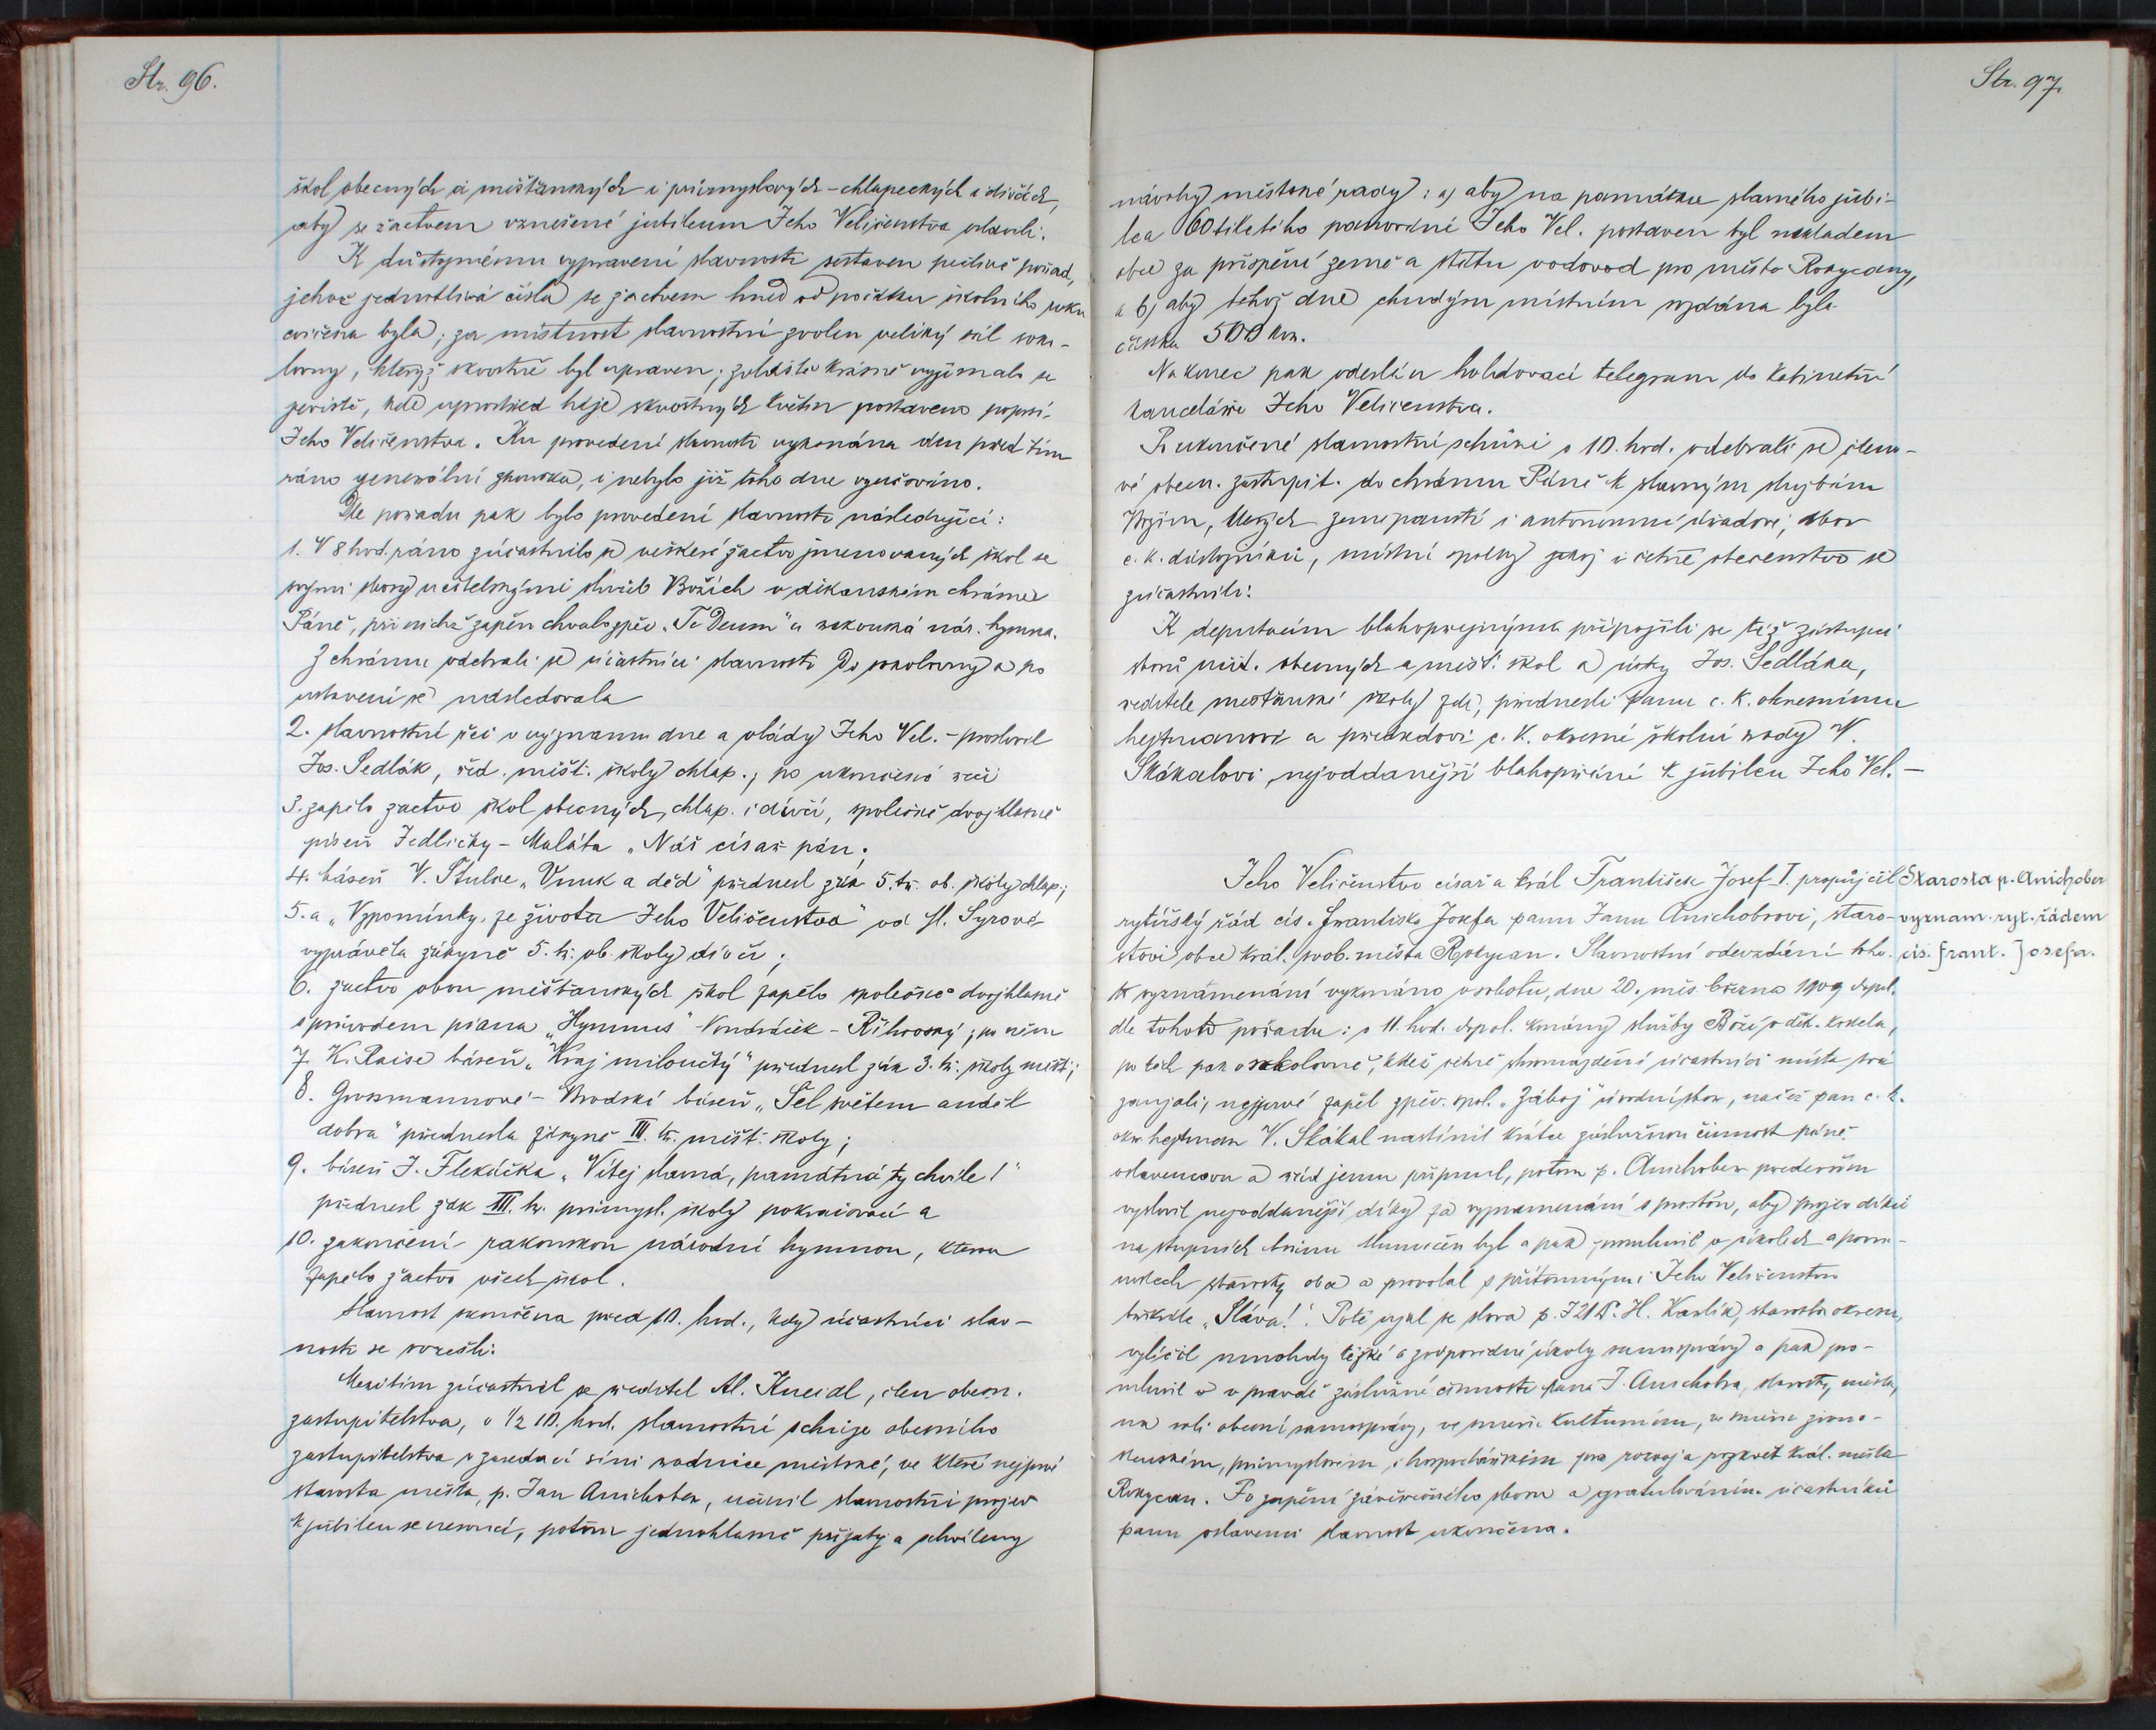 Str. 96.
škol obecných a měšťanských i průmyslových – chlapeckých i dívčích,
aby se žactvem vznešené jubileum Jeho Veličenstva oslavili.
K důstojnému vypravení slavnosti sestaven pečlivě pořad,
jehož jednotlivá čísla se žactvem hned od počátku školního roku
cvičena byla; za místnost slavnostní zvolen veliký sál soko-
lovny, kterýž skvostně byl upraven; zvláště krásně vyjímalo se
jeviště, kde uprostřed háje skvostných květin postaveno poprsí
Jeho Veličenstva. Ku provedení slavnosti vykonána den před tím
ráno generální zkouška, i nebylo již toho dne vyučováno.
Dle pořadu pak bylo provedení slavnosti následující:
1. V 8 hod. ráno zúčastnilo se veškeré žactvo jmenovaných škol se
svými sbory učitelskými služeb Božích v děkanském chrámě
Páně, při nichž zapěn chvalozpěv „Te Deum" a rakouská nár. hymna.
Z chrámu odebrali se účastníci slavnosti do sokolovny a po
ustavení se následovala
2. slavnostní řeč o významu dne a vlády Jeho Vel. – proslovil
Jos. Sedlák, řed. měšť. školy chlap.; po ukončené řeči
3. zapělo žactvo škol obecných, chlap. i dívčí, společně dvojhlasně
píseň Jedličky – Maláta „Náš císař pán;
4. báseň V. Štulce „Vnuk a děd" přednesl žák 5. tř. ob. školy chlap.;
5. a „Vzpomínky ze života Jeho Veličenstva" od Sl. Syrové
vyprávěla žákyně 5. tř. ob. školy dívčí;
6. žactvo obou měšťanských škol zapělo společně dvojhlasně
s průvodem piana „Hymnus" – Vondráček – Říhovský; po něm
7. K. Raise báseň „Kraj miloučký" přednesl žák 3. tř. školy měšť.;
8. Grossmannové – Brodské báseň „Šel světem anděl
dobra" přednesla žákyně III. tř. měšť. školy;
9. báseň J. Flekáčka „Vítej slavná, památná ty chvíle!"
přednesl žák III. tř. průmysl. školy pokračovací a
10. zakončení rakouskou národní hymnou, kterou
zapělo žactvo všech škol.
Slavnost skončena před 10. hod., kdy účastníci slav-
nosti se rozešli.
Mezitím zúčastnil se ředitel Al. Kneidl, člen obecn.
zastupitelstva, o 1/2 10. hod. slavnostní schůze obecního
zastupitelstva v zasedací síni radnice městské, ve které nejprvé
starosta města, p. Jan Anichober, učinil slavnostní projev
k jubileu se nesoucí, potom jednohlasně přijaty a schváleny
Str. 97.
návrhy městské rady: a) aby na památku slavného jubi-
lea 60tiletého panování Jeho Vel. postaven byl nákladem
obce za přispění země a státu vodovod pro město Rokycany,
a b) aby téhož dne chudým místním rozdána byla
částka 500 kor.
Na konec pak odeslán holdovací telegram do kabinetní
kanceláře Jeho Veličenstva.
Po ukončené slavnostní schůzi o 10. hod. odebrali se členo-
vé obecn. zastupit. do chrámu Páně k slavným službám
Božím, kterých zeměpanští i autonomní úřadové, sbor
c. k. důstojníků, místní spolky jakož i četné obecenstvo se
zúčastnili.
K deputacím blahopřejným připojili se též zástupci
sborů učit. obecných a měšť. škol a ústy Jos. Sedláka,
ředitele měšťanské školy zde, přednesli panu c. k. okresnímu
hejtmanovi a předsedovi c. k. okresní školní rady V.
Skákalovi nejoddanější blahopřání k jubileu Jeho Vel. –
Jeho Veličenstvo císař a král František Josef I. propůjčil
Starosta p. Anichober
rytířský řád cís. Františka Josefa panu Janu Anichobrovi, staro-
vyznam. ryt. řádem
stovi obce král. svob. města Rokycan. Slavnostní odevzdání toho-
cís. Frant. Josefa.
to vyznamenání vykonáno v sobotu, dne 20. měs. března 1909 dopol.
dle tohoto pořadu: o 11. hod. dopol. konány služby Boží v děk. kostele,
po těch pak v sokolovně, kdež četně shromáždění účastníci místa svá
zaujali; nejprvé zapěl zpěv. spol. „Záboj" úvodní sbor, načež pan c. k.
okr. hejtman V. Skákal nastínil krátce záslužnou činnost páně
oslavencovu a řád jemu připnul, potom p. Anichober především
vyslovil nejoddanější díky za vyznamenání s prosbou, aby projev díků
na stupních trůnu tlumočen byl a pak promluvil o úkolech a povin-
nostech starosty obce a provolal s přítomnými Jeho Veličenstvu
třikráte „Sláva!". Poté ujal se slova p. JUDr. H. Karlík, starosta okresu,
vylíčil mnohdy těžké a zodpovědné úkoly samosprávy a pak pro-
mluvil o v pravdě záslužné činnosti pana J. Anichobra, starosty města,
na roli obecní samosprávy, ve směru kulturním, ve směru živno-
stenském, průmyslovém i hospodářském pro rozvoj a rozkvět král. města
Rokycan. Po zapění závěrečného sboru a gratulováním účastníků
panu oslavenci slavnost ukončena.